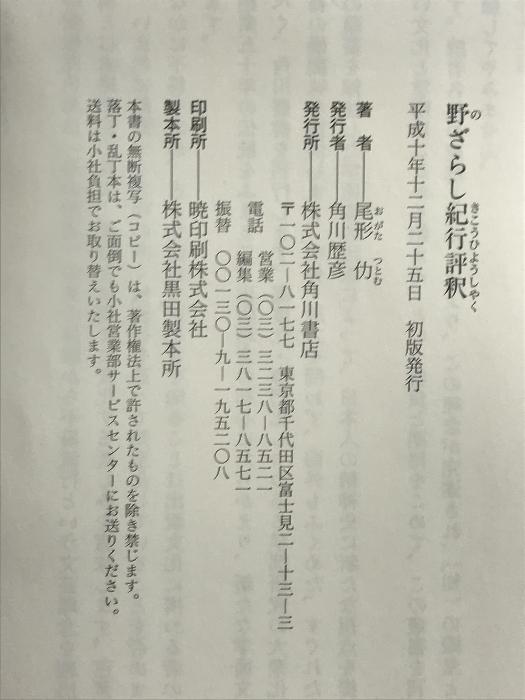 野ざらし紀行評釈
の
きこうひようしやく
平成十年十二月二十五日　初版発行
著　者――尾形　仂
おがた　つとむ
発行者――角川歴彦
発行所――株式会社角川書店
〒一〇二―八一七七　東京都千代田区富士見二―十三―三
電話　営業（〇三）三二三八―八五二一
編集（〇三）三八一七―八五七一
振替　〇〇一三〇―九―一九五二〇八
印刷所――暁印刷株式会社
製本所――株式会社黒田製本所
本書の無断複写（コピー）は、著作権法上で許されたものを除き禁じます。
落丁・乱丁本は、ご面倒でも小社営業部サービスセンターにお送りください。
送料は小社負担でお取り替えいたします。